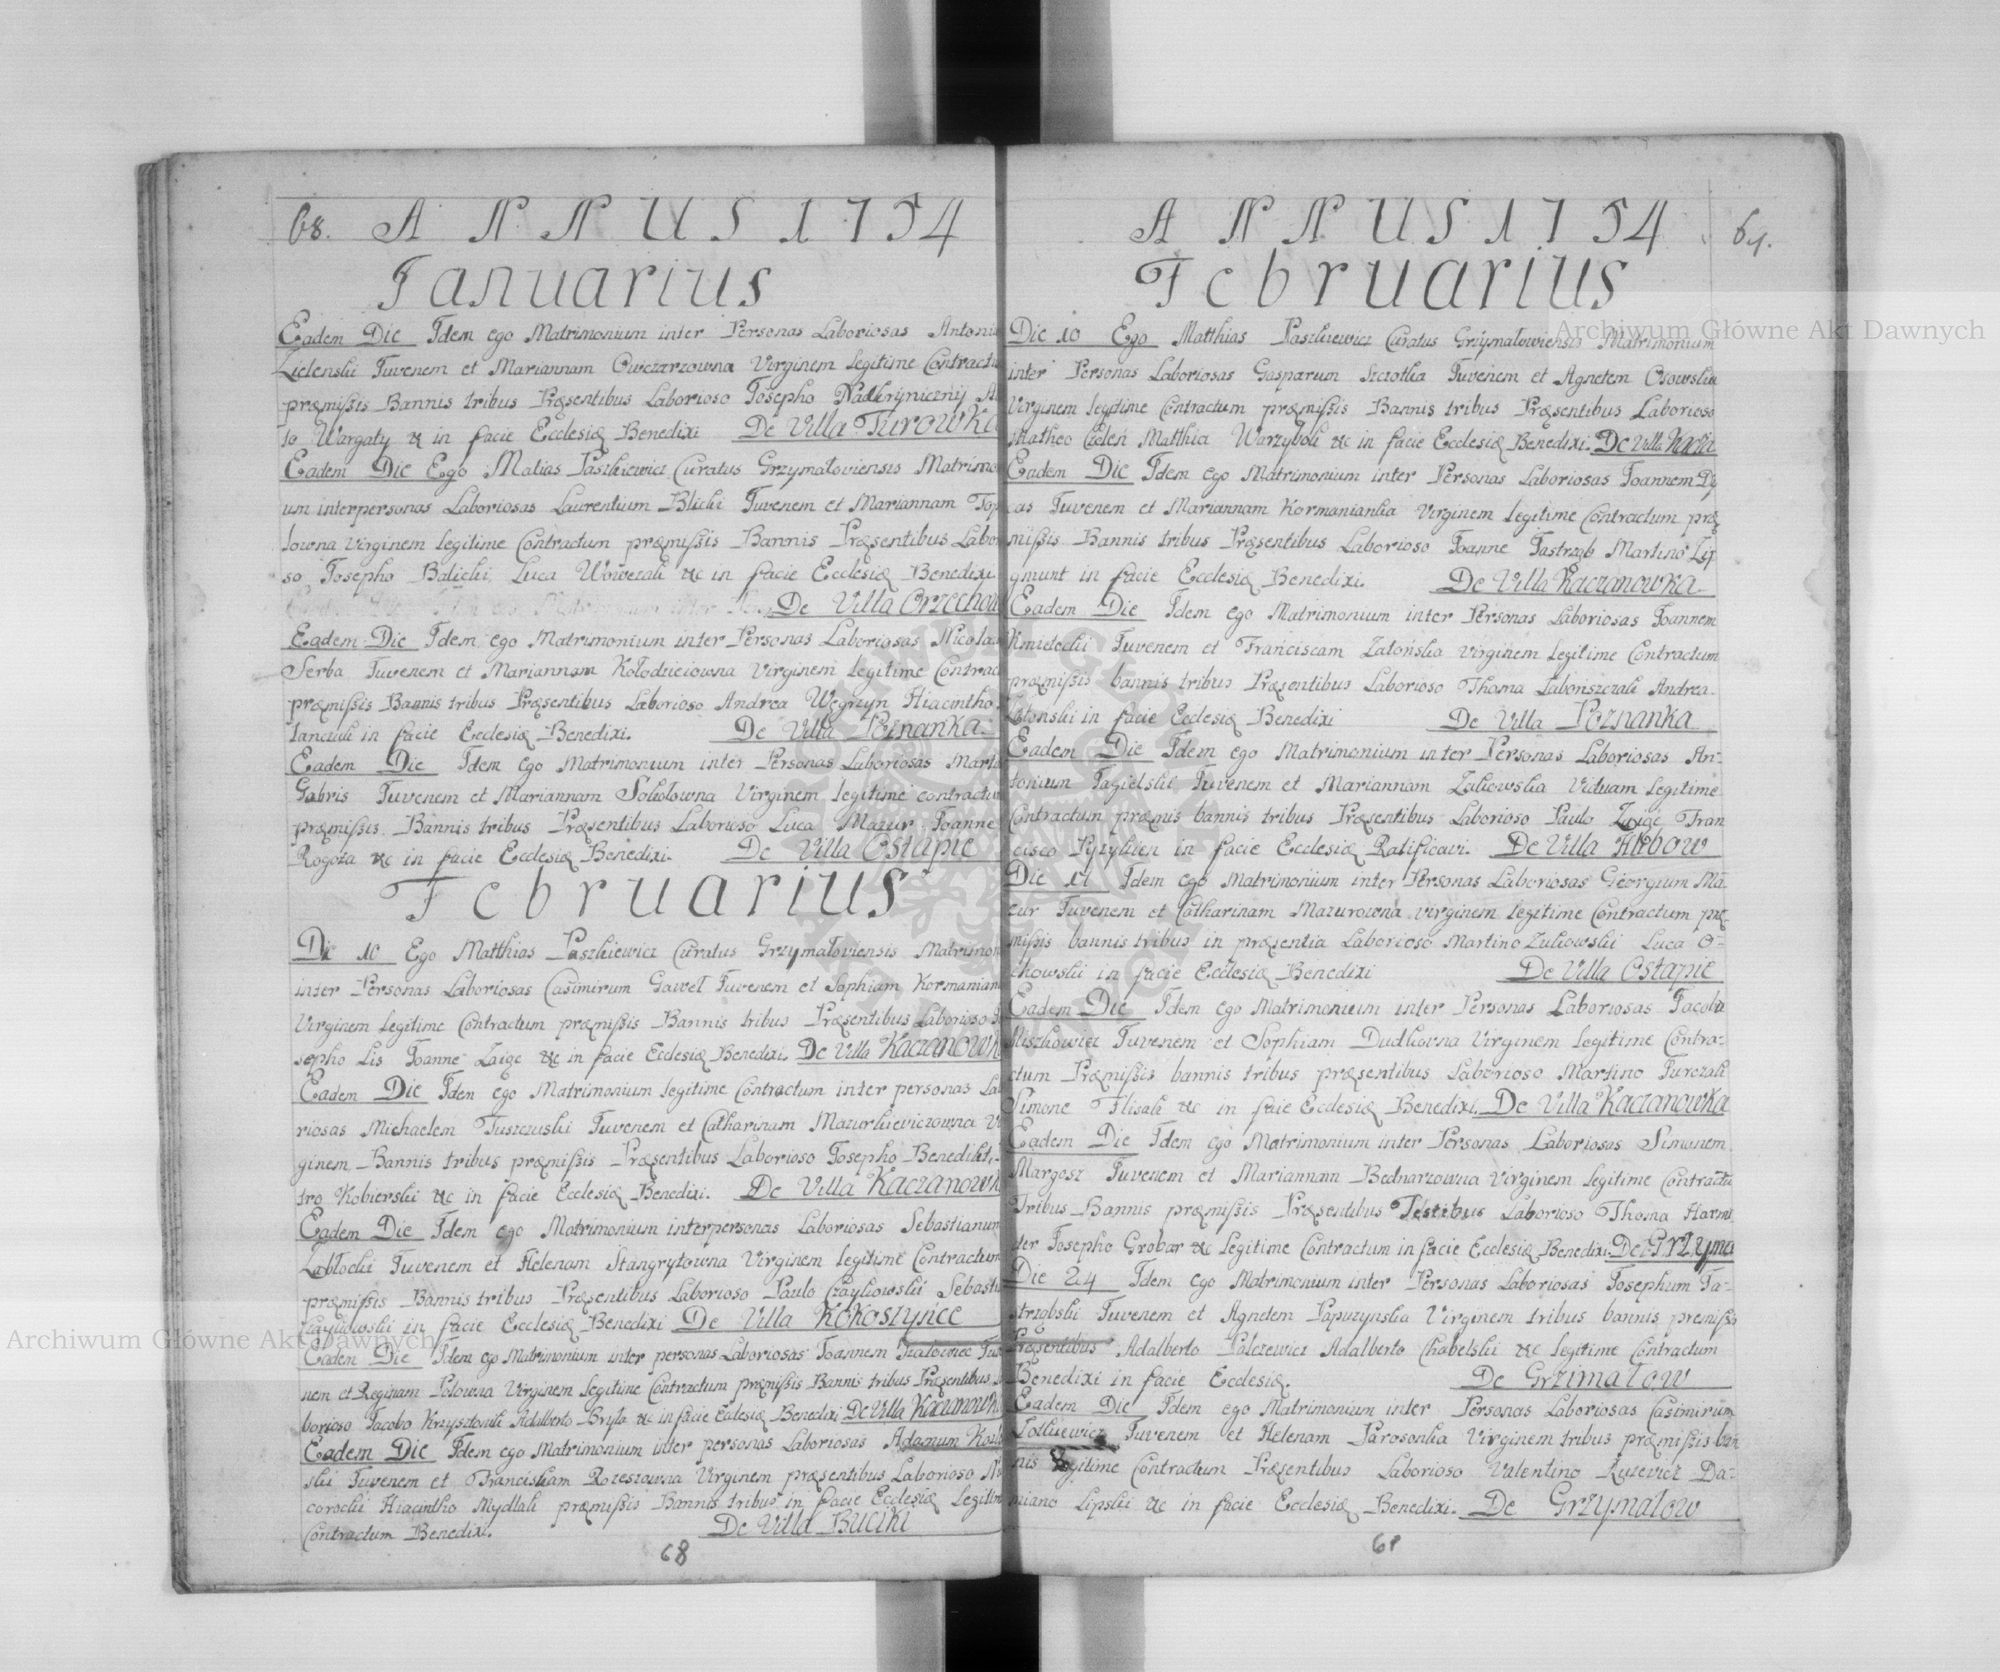 68. ANNUS 1754
Januarius
Eadem Die Idem ego Matrimonium inter Personas Laboriosas Antoniu
Lielenski Juvenem et Mariannam Owczarzowna Virginem legitime Contractu
præmissis Bannis tribus Præsentibus Laborioso Josepho Nadkryniczny An
to Wargaty &c in facie Ecclesiæ Benedixi De Villa Turowka
Eadem Die Ego Matias Paszkiewicz Curatus Grzymaloviensis Matrimo
um inter personas Laboriosas Laurentium Blicki Juvenem et Mariannam Top
lowna Virginem legitime Contractum præmissis Bannis Præsentibus Labor
so Josepho Balicki Luca Wowczak &c in facie Ecclesiæ Benedixi
De Villa Orzechow
Eadem Die Idem ego Matrimonium inter Personas Laboriosas Nicolau
Serba Juvenem et Mariannam Kołodzieiowna Virginem legitime Contrac
præmissis Bannis tribus Præsentibus Laborioso Andrea Węgrzyn Hiacintho
tanciuk in facie Ecclesiæ Benedixi. De Villa Poznanka.
Eadem Die Idem ego Matrimonium inter Personas Laboriosas Marti
Gabris Juvenem et Mariannam Sokołowna Virginem legitime contractu
præmissis Bannis tribus Præsentibus Laborioso Luca Mazur Joanne
Rogoza &c in facie Ecclesiæ Benedixi. De Villa Ostapie
Februarius
Die 10 Ego Matthias Paszkiewicz Curatus Grzymałoviensis Matrimon
inter Personas Laboriosas Casimirum Gaweł Juvenem et Sophiam Kormanian
Virginem legitime Contractum præmissis Bannis tribus Præsentibus Laborioso Jo
sepho Lis Joanne Zaigc &c in facie Ecclesiæ Benedixi. De Villa Kaczanowk
Eadem Die Idem ego Matrimonium legitime Contractum inter personas Lab
riosas Michaelem Tuszczuski Juvenem et Catharinam Mazurkieviczowna Vi
ginem Bannis tribus præmissis Præsentibus Laborioso Josepho Benedikt
tro Kobierski &c in facie Ecclesiæ Benedixi. De Villa Kaczanowk
Eadem Die Idem ego Matrimonium inter personas Laboriosas Sebastianum
Zabłocki Juvenem et Helenam Stangrytowna Virginem legitime Contractum
præmissis Bannis tribus Præsentibus Laborioso Paulo Czaykowski Sebasti
Czaykowski in facie Ecclesiæ Benedixi De Villa Kokoszynce
Eadem Die Idem ego Matrimonium inter personas Laboriosas Joannem Juv
nem et Reginam Polowna Virginem legitime Contractum præmissis Bannis tribus Præsentibus La
borioso Jacobo Krzysztowik Adalberto Bryła &c in facie Ecclesiæ Benedixi De Villa Kaczanowk
Eadem Die Idem ego Matrimonium inter personas Laboriosas Adamum Kozło
ski Juvenem et Franciskam Rozeszowna Virginem præsentibus Laborioso Ni
corocki Hiacintho Mydlak præmissis Bannis tribus in facie Ecclesiæ legitim
Contractum Benedixi. De Villa Buciki
68
ANNUS 1754 69.
Februarius
Die 10 Ego Matthias Paszkiewicz Curatus Grzymałowiensis Matrimonium
inter Personas Laboriosas Gasparum Szczotka Juvenem et Agnetem Osowska
Virginem legitime Contractum præmissis Bannis tribus Præsentibus Laborioso
Matheo Czeleń Matthia Warzybok &c in facie Ecclesiæ Benedixi. De Villa Kacza
Eadem Die Idem ego Matrimonium inter Personas Laboriosas Joannem Dy
cas Juvenem et Mariannam Kormanianka Virginem legitime Contractum præ
missis Bannis tribus Præsentibus Laborioso Joanne Jastrząb Martino Zy
gmunt in facie Ecclesiæ Benedixi. De Villa Kaczanowka.
Eadem Die Idem ego Matrimonium inter Personas Laboriosas Joannem
Kmietecki Juvenem et Franciscam Zatońska Virginem legitime Contractum
præmissis bannis tribus Præsentibus Laborioso Thoma Jabonszczak Andrea
Zatonski in facie Ecclesiæ Benedixi De Villa Poznanka
Eadem Die Idem ego Matrimonium inter Personas Laboriosas An-
tonium Jagielski Juvenem et Mariannam Zakowska Viduam legitime
Contractum præmis bannis tribus Præsentibus Laborioso Paulo Zaigc Fran
cisco in facie Ecclesiæ Ratificavi. De Villa Hlebow
Die 11 Idem ego Matrimonium inter Personas Laboriosas Georgium Ma-
zur Juvenem et Catharinam Mazurowna virginem legitime Contractum præ-
missis bannis tribus in præsentia Laborioso Martino Zukowski Luca O-
chowski in facie Ecclesiæ Benedixi De Villa Ostapie
Eadem Die Idem ego Matrimonium inter Personas Laboriosas Jacobu
Miszkowicz Juvenem et Sophiam Dudkowna Virginem legitime Contra-
ctum Præmissis bannis tribus præsentibus Laborioso Martino Jurczak
Simone Flisak &c in facie Ecclesiæ Benedixi. De Villa Kaczanowka
Eadem Die Idem ego Matrimonium inter Personas Laboriosas Simonem
Margosz Juvenem et Mariannam Bednarzowna Virginem legitime Contractu
Tribus Bannis præmissis Præsentibus Testibus Laborioso Thoma Harmi
der Josepho Grobar &c legitime Contractum in facie Ecclesiæ Benedixi. De Grzyma
Die 24 Idem ego Matrimonium inter Personas Laboriosas Josephum Ja-
strzębski Juvenem et Agnetem Papuzynska Virginem tribus bannis premissis
Præsentibus Adalberto Palczewicz Adalberto Chabelski &c legitime Contractum
Benedixi in facie Ecclesiæ. De Grzimalow
Eadem Die Idem ego Matrimonium inter Personas Laboriosas Casimirum
Zotkiewicz Juvenem et Helenam Parosonka Virginem tribus præmissis ban
nis legitime Contractum Præsentibus Laborioso Valentino Kuzevicz Da-
miano Lipski &c in facie Ecclesiæ Benedixi. De Grzymalow
69
Archiwum Główne Akt Dawnych
Archiwum Główne Akt Dawnych